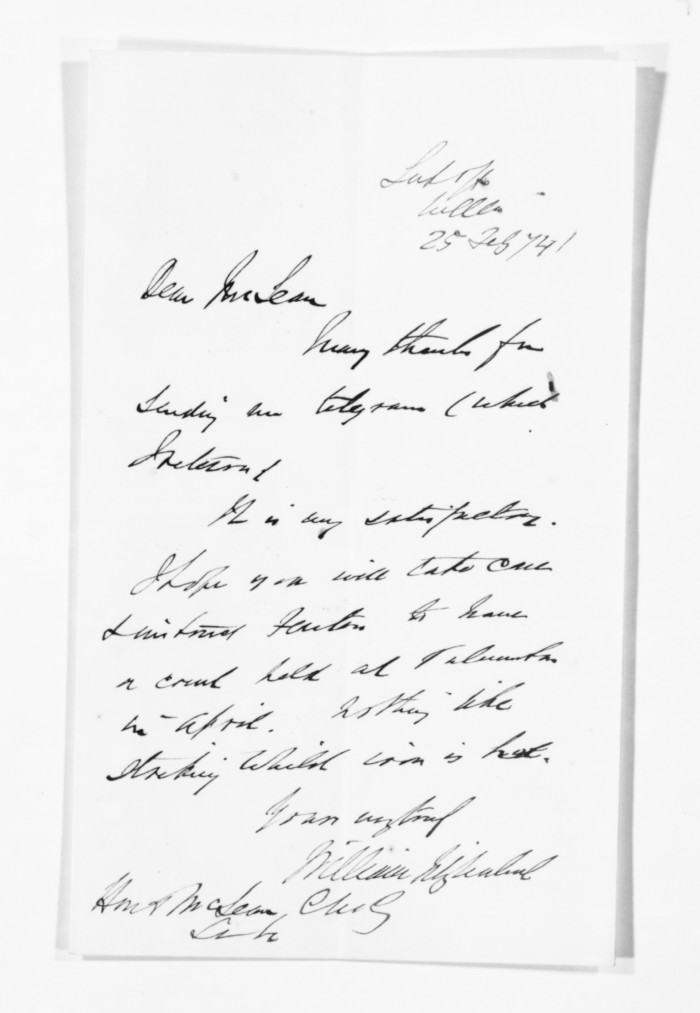 25 Feb 74
Dear McLean
Many thanks for
sending me telegram (which
I return)
It is very satisfactory.
I hope you will take care
& instruct Fenton to have
a court held at
in April. Nothing like
striking whilst iron is hot.
Yours very truly
William
Hon D McLean